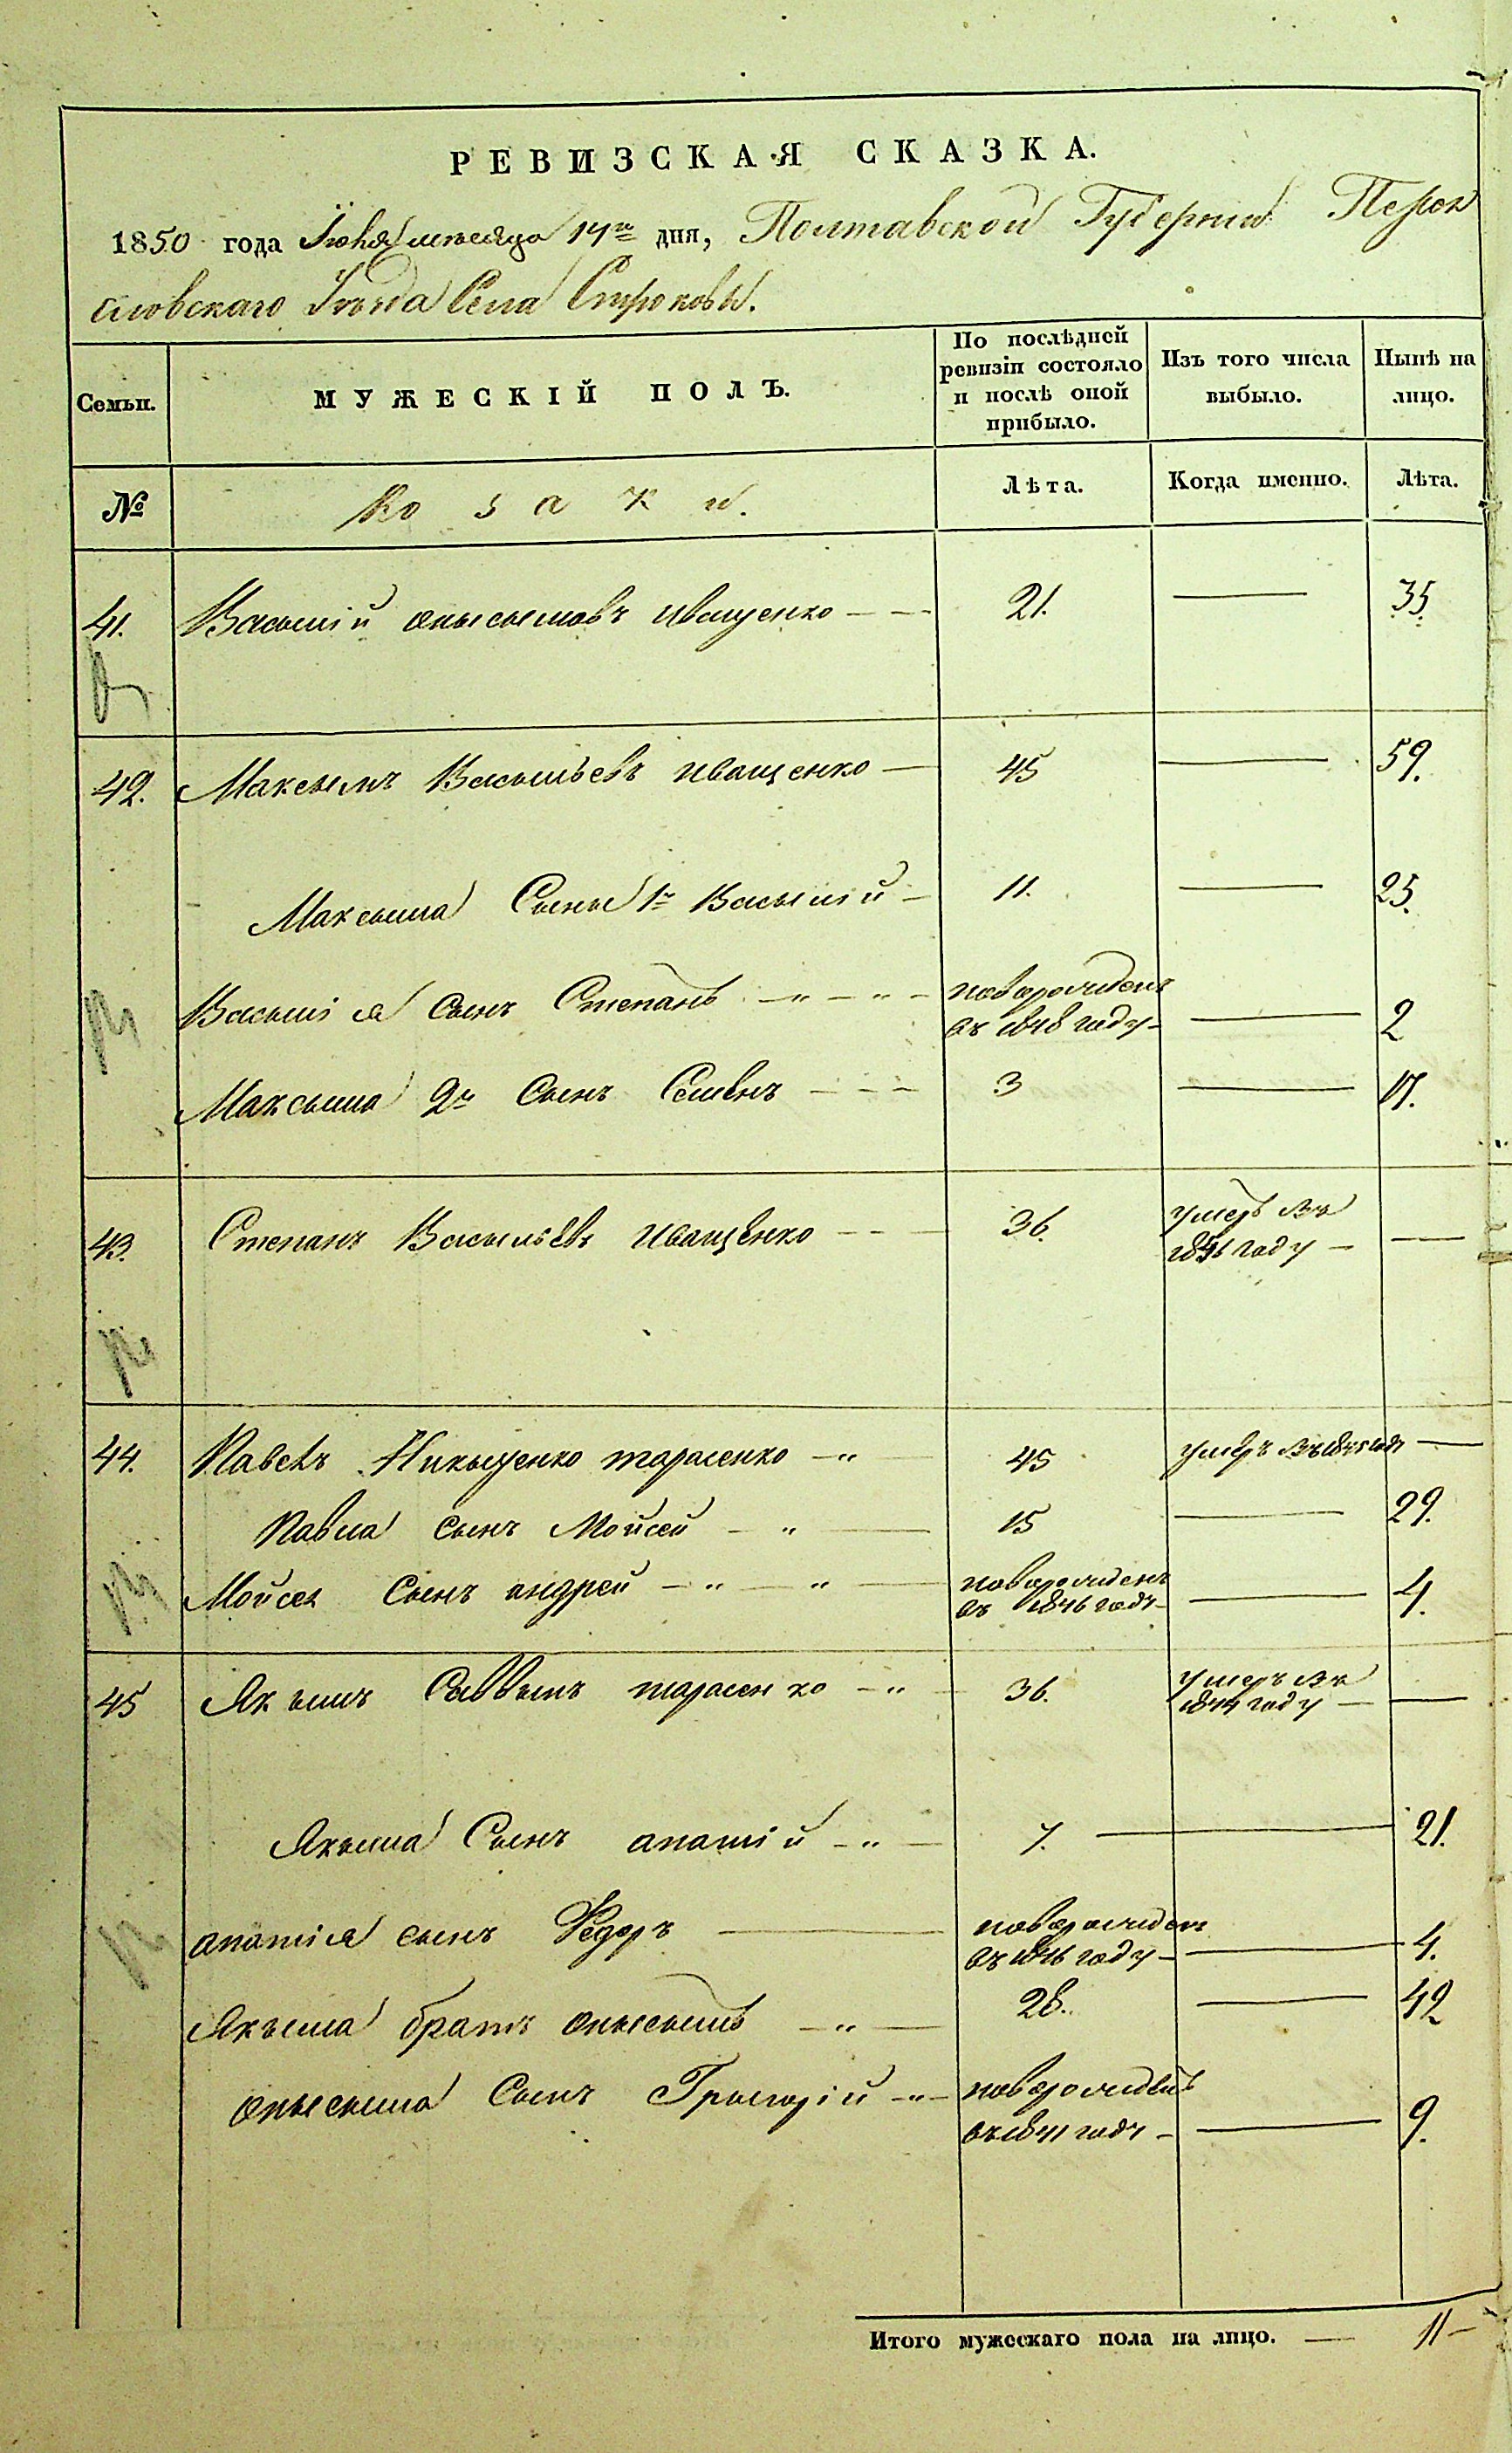 РЕВИЗСКАЯ СКАЗКА.
1850 года Іюня месяца 14го дня, Полтавской Губерніи Перея
словскаго Уезда Села Строковы.
Семьи.
МУЖЕСКІЙ ПОЛЪ.
По послѣдней
ревизіи состояло
и послѣ оной
прибыло.
Изъ того числа
выбыло.
Нынѣ на
лицо.
№
Козаки.
Лѣта.
Когда именно.
Лѣта.
41. Васылій Онысымовъ Иващенко 21. — 35.
42. Максымъ Васыльевъ Иващенко — 45 — 59.
Максыма Сыны 1й Васылій — 11. — 25.
Васылія Сынъ Степанъ новорожденъ
въ 1848 году — — 2
Максыма 2й Сынъ Семенъ 3 — 17.
43. Степанъ Васыльевъ Иващенко 36. умеръ въ
1846 году — —
44. Павелъ Никыценко тарасенко 45 умеръ въ 1845 году —
Павла Сынъ Мойсей 15 — 29.
Мойсея Сынъ андрей новорожденъ
въ 1846 году — — 4.
45 Якымъ Саввынъ тарасенко 36. умеръ въ
1844 году — —
Якыма Сынъ апатій 7. — 21.
апатія сынъ Федоръ — новорожденъ
въ 1846 году — — 4.
Якыма братъ Онысымъ 28. — 42
Онысыма Сынъ Грыгорій новорожденъ
въ 1841 году — — 9.
Итого мужескаго пола на лицо. — 11 —